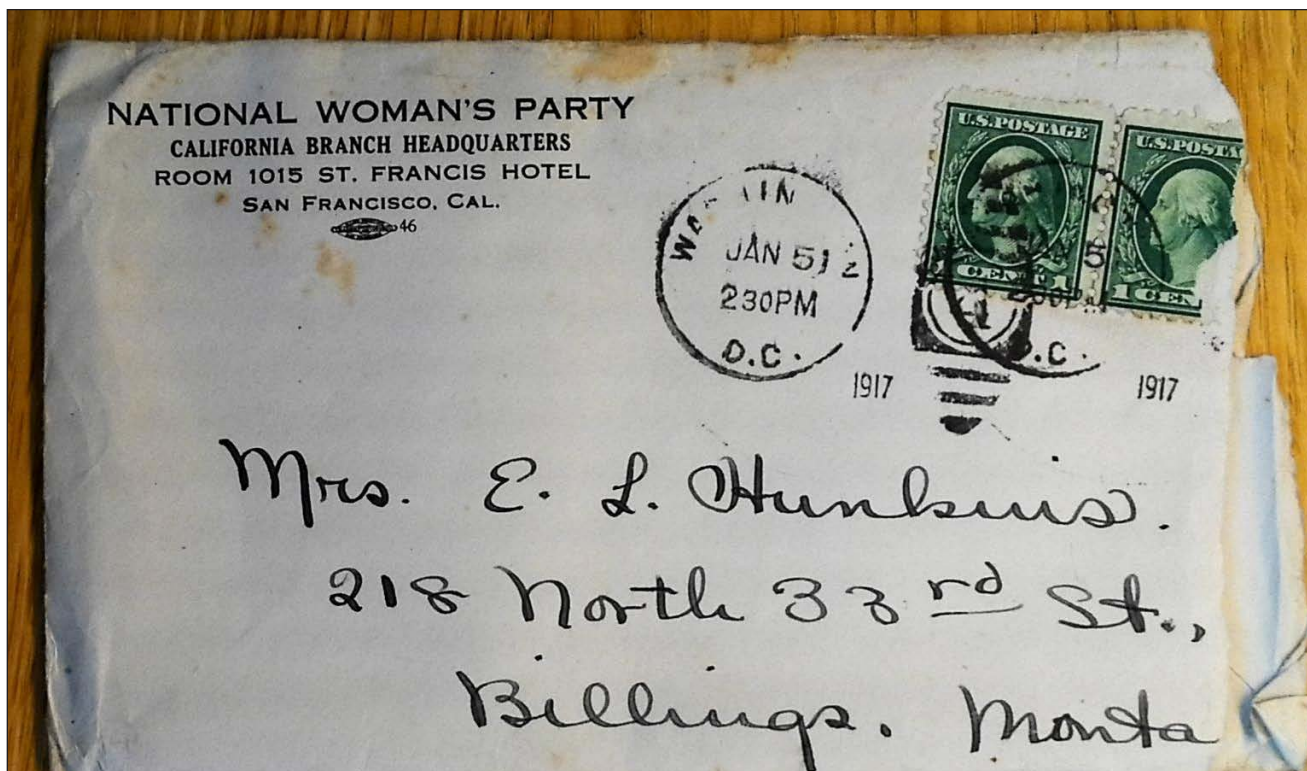 NATIONAL WOMAN'S PARTY
CALIFORNIA BRANCH HEADQUARTERS
ROOM 1015 ST. FRANCIS HOTEL
SAN FRANCISCO, CAL.
46
U.S. POSTAGE
1 CENT 1
U.S. POSTA
1 CEN
JAN 5
230PM
D.C.
1917
D.C.
1917
Mrs. E. L. Hunkins.
218 North 33rd St.,
Billings. Monta